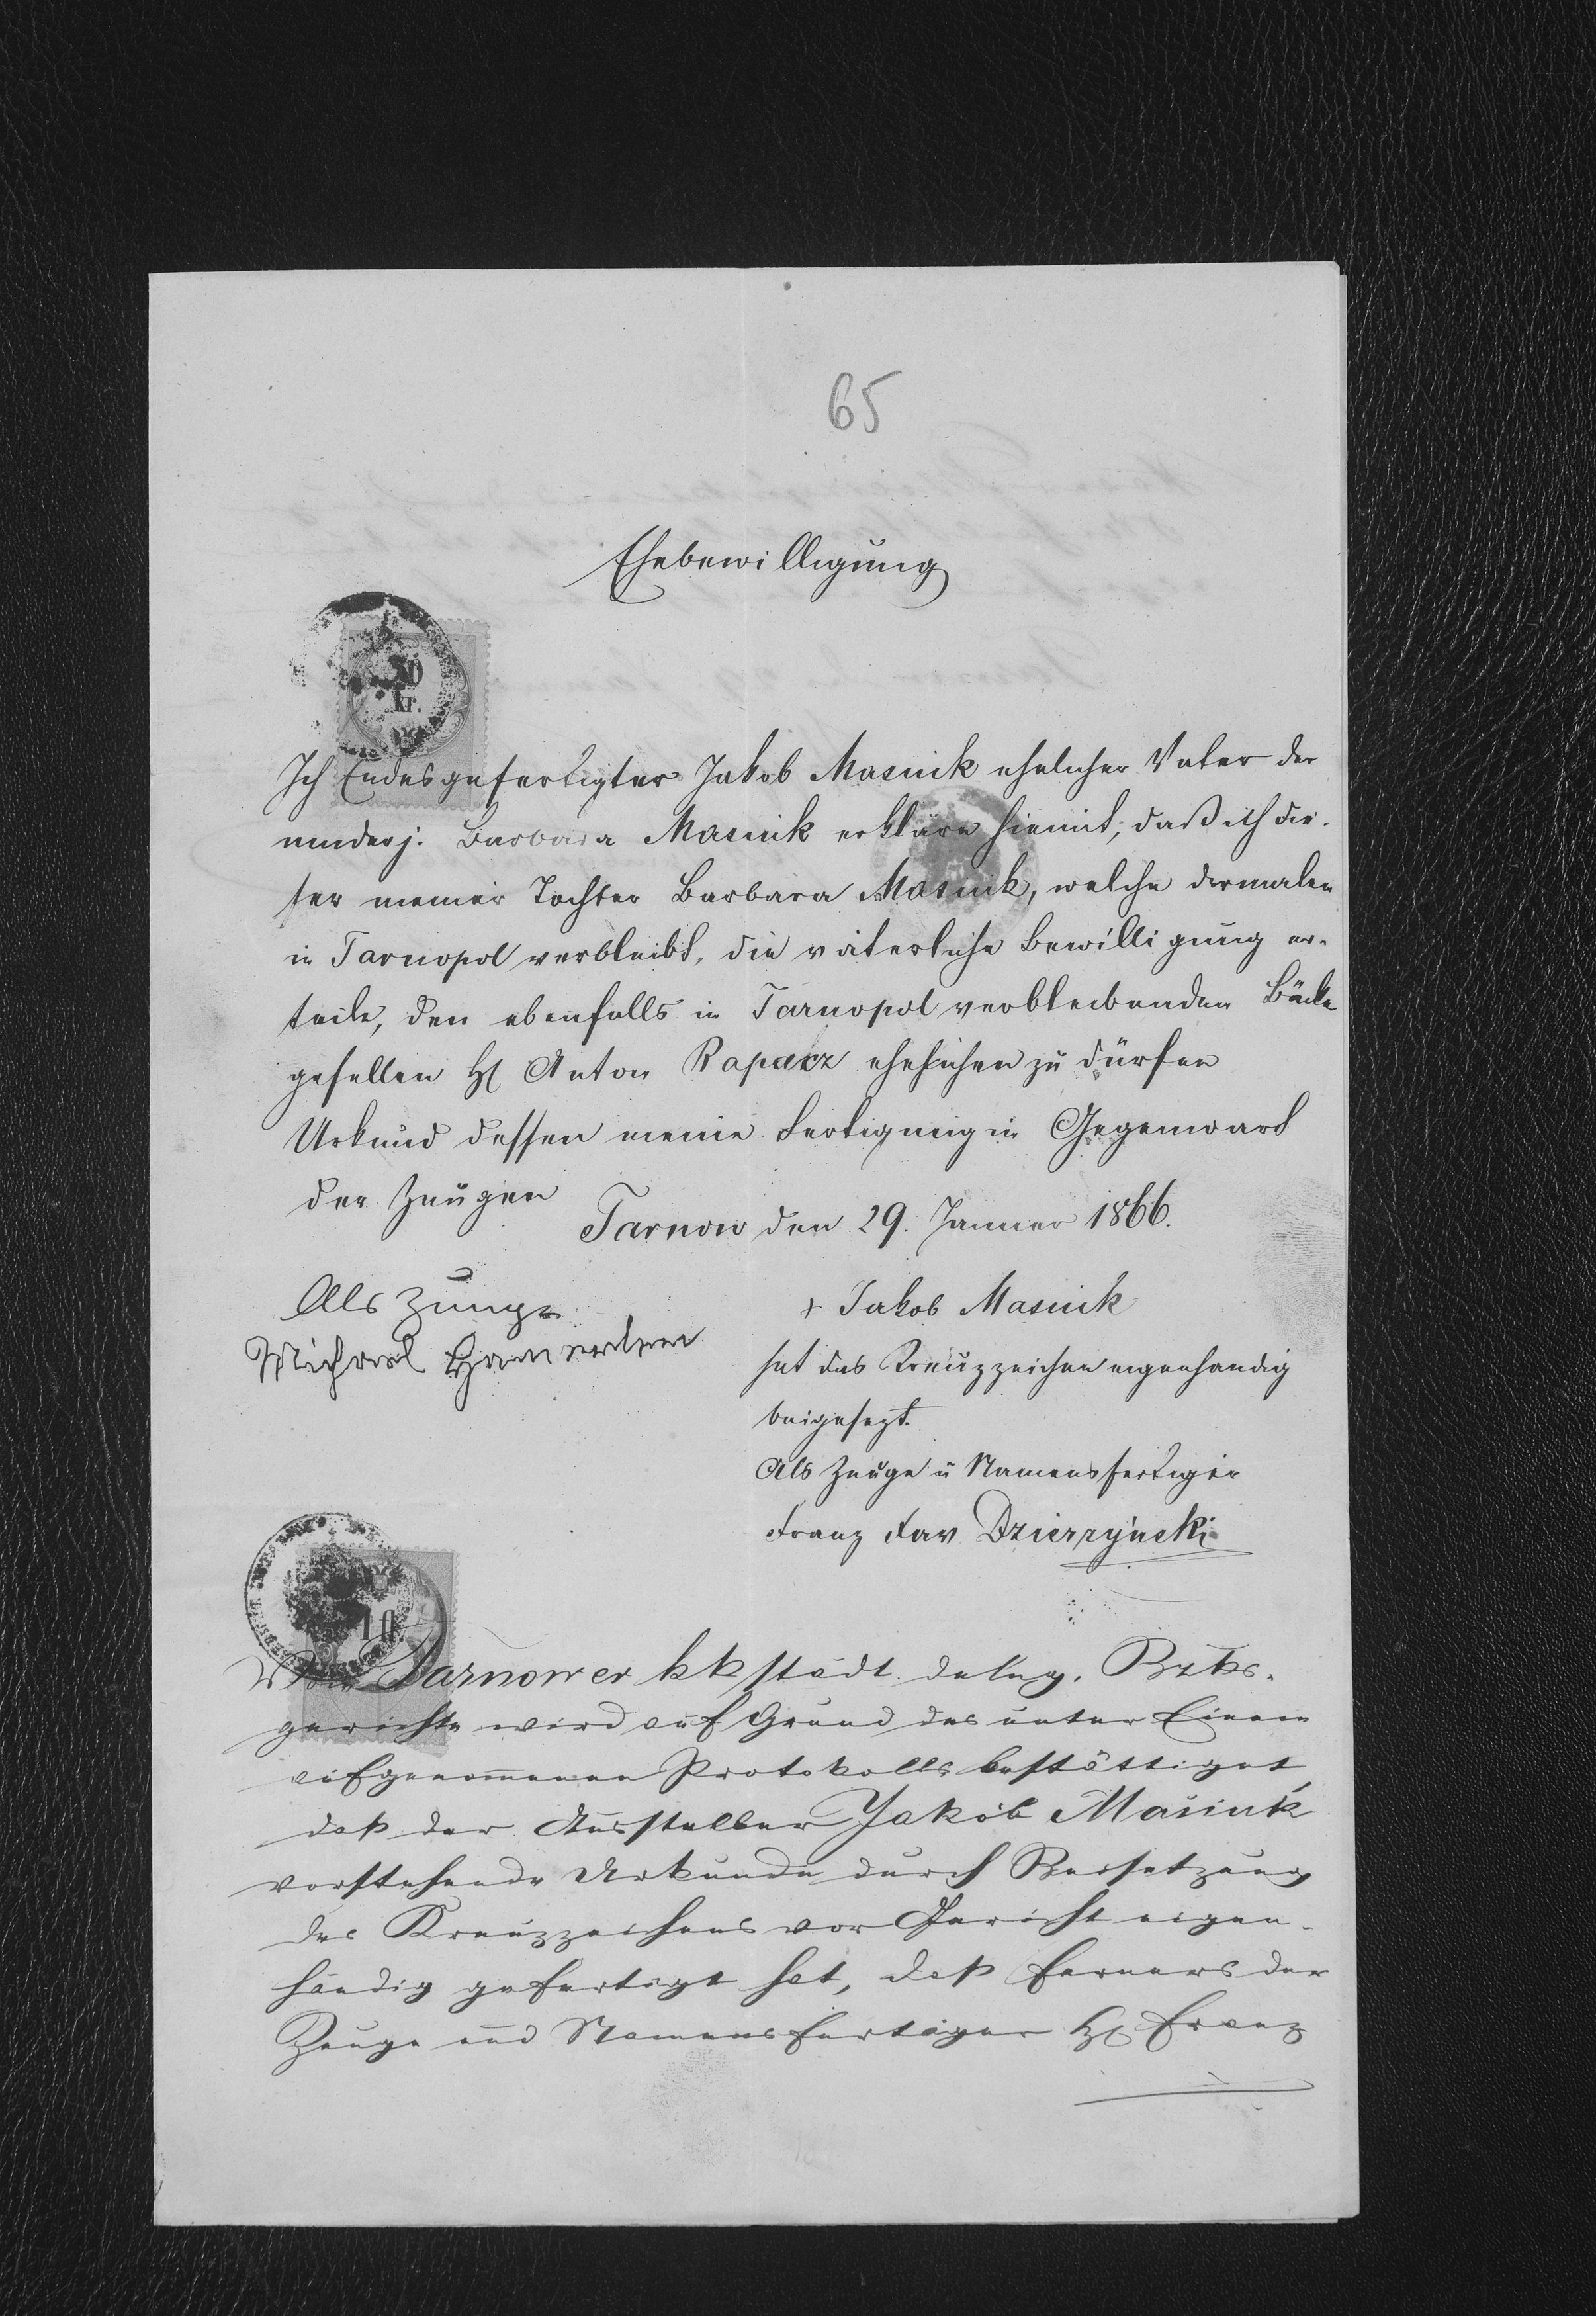 65
Ehebewilligung
50
kr.
Ich Endesgefertigter Jakob Masiuk ehelicher Vater der
minderj. Barbara Masiuk erkläre hiemit, daß ich die-
ser meiner Tochter Barbara Masiuk, welche dermalen
in Tarnopol verbleibt, die väterliche Bewilligung er-
teile, den ebenfalls in Tarnopol verbleibenden Bäcker
gesellen H Anton Raparz ehelichen zu dürfen
Urkund dessen meine Fertigung in Gegenwart
der Zeugen
Tarnow den 29. Janner 1866.
Als Zeuge
Michael
+ Jakob Masiuk
hat das Kreuzzeichen eigenhandig
beigesezt.
Als Zeuge u Namensfertiger
Franz Xav Dzierzyński
1 fl
Vom Tarnower kk städt. deleg. Bzks-
gerichte wird auf Grund des unter Einem
aufgenommenen Protokolls bestättiget
daß der Aussteller Jakób Masiuk
vorstehende Urkunde durch Beisetzung
des Kreuzzeichens vor Gericht eigen-
händig gefertigt hat, daß ferners der
Zeuge und Namensfertiger H Franz